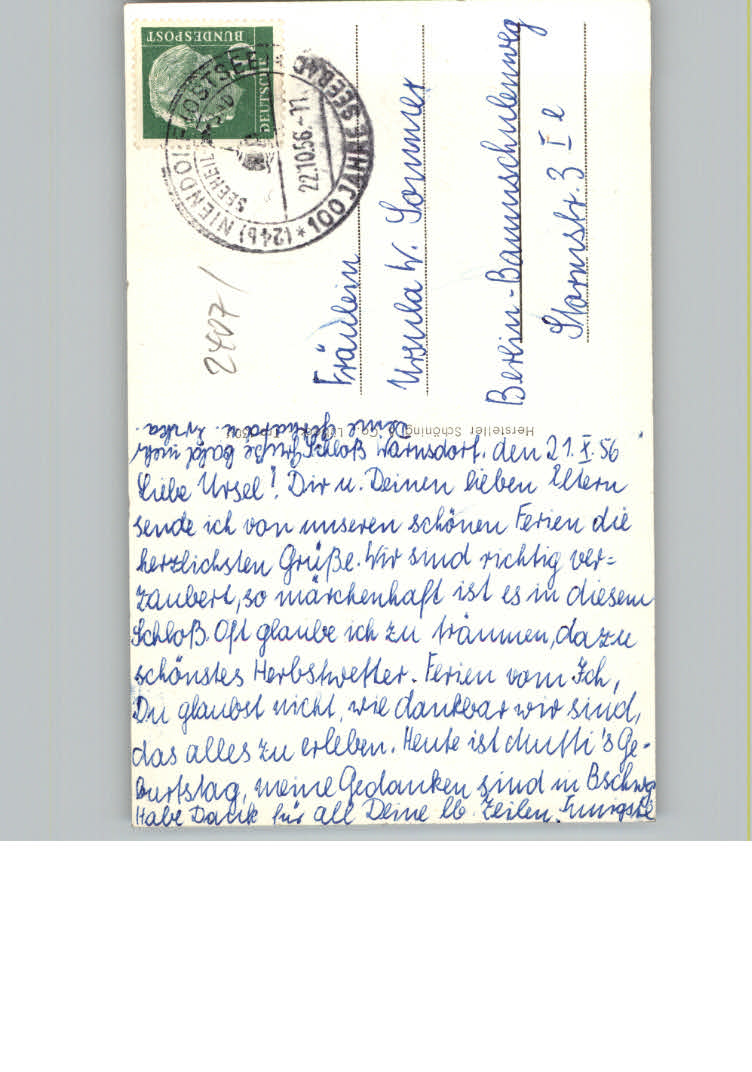 Schloß Warnsdorf. den 21.X.56
Liebe Ursel! Dir u. Deinen lieben Eltern
sende ich von unseren schönen Ferien die
herzlichsten Grüße. Wir sind richtig ver=
zaubert, so märchenhaft ist es in diesem
Schloß. Oft glaube ich zu träumen, dazu
schönstes Herbstwetter. Ferien vom Ich,
Du glaubst nicht, wie dankbar wir sind,
das alles zu erleben. Heute ist Mutti's Ge-
burtstag, meine Gedanken sind in Bschwg
Habe Dank für all Deine lb. Zeilen. Innigste
Grüße bald mehr
Deine Gerharda u.
Hersteller Schöning & Co., Lübeck
Fräulein
Ursula W. Sommer
Berlin-Baumschulenweg
Stormstr. 3 I e
2407/
DEUTSCHE
BUNDESPOST
(24b) NIENDORF (OSTSEE)
22.10.56.-11
* 100 JAHRE SEEBAD
SEEHEIL